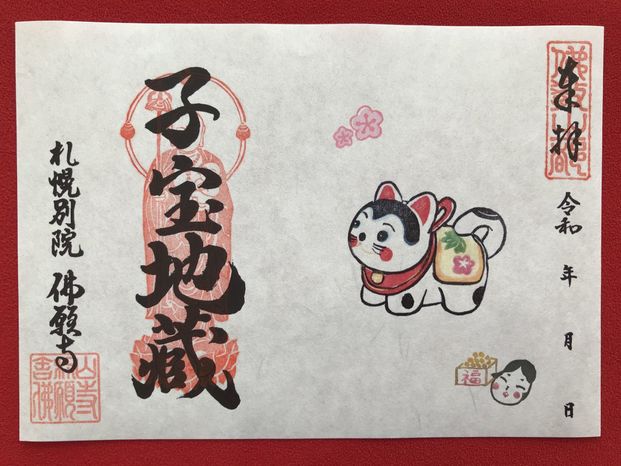 奉拝
令和 年 月 日
福
子宝地蔵
札幌別院 佛願寺